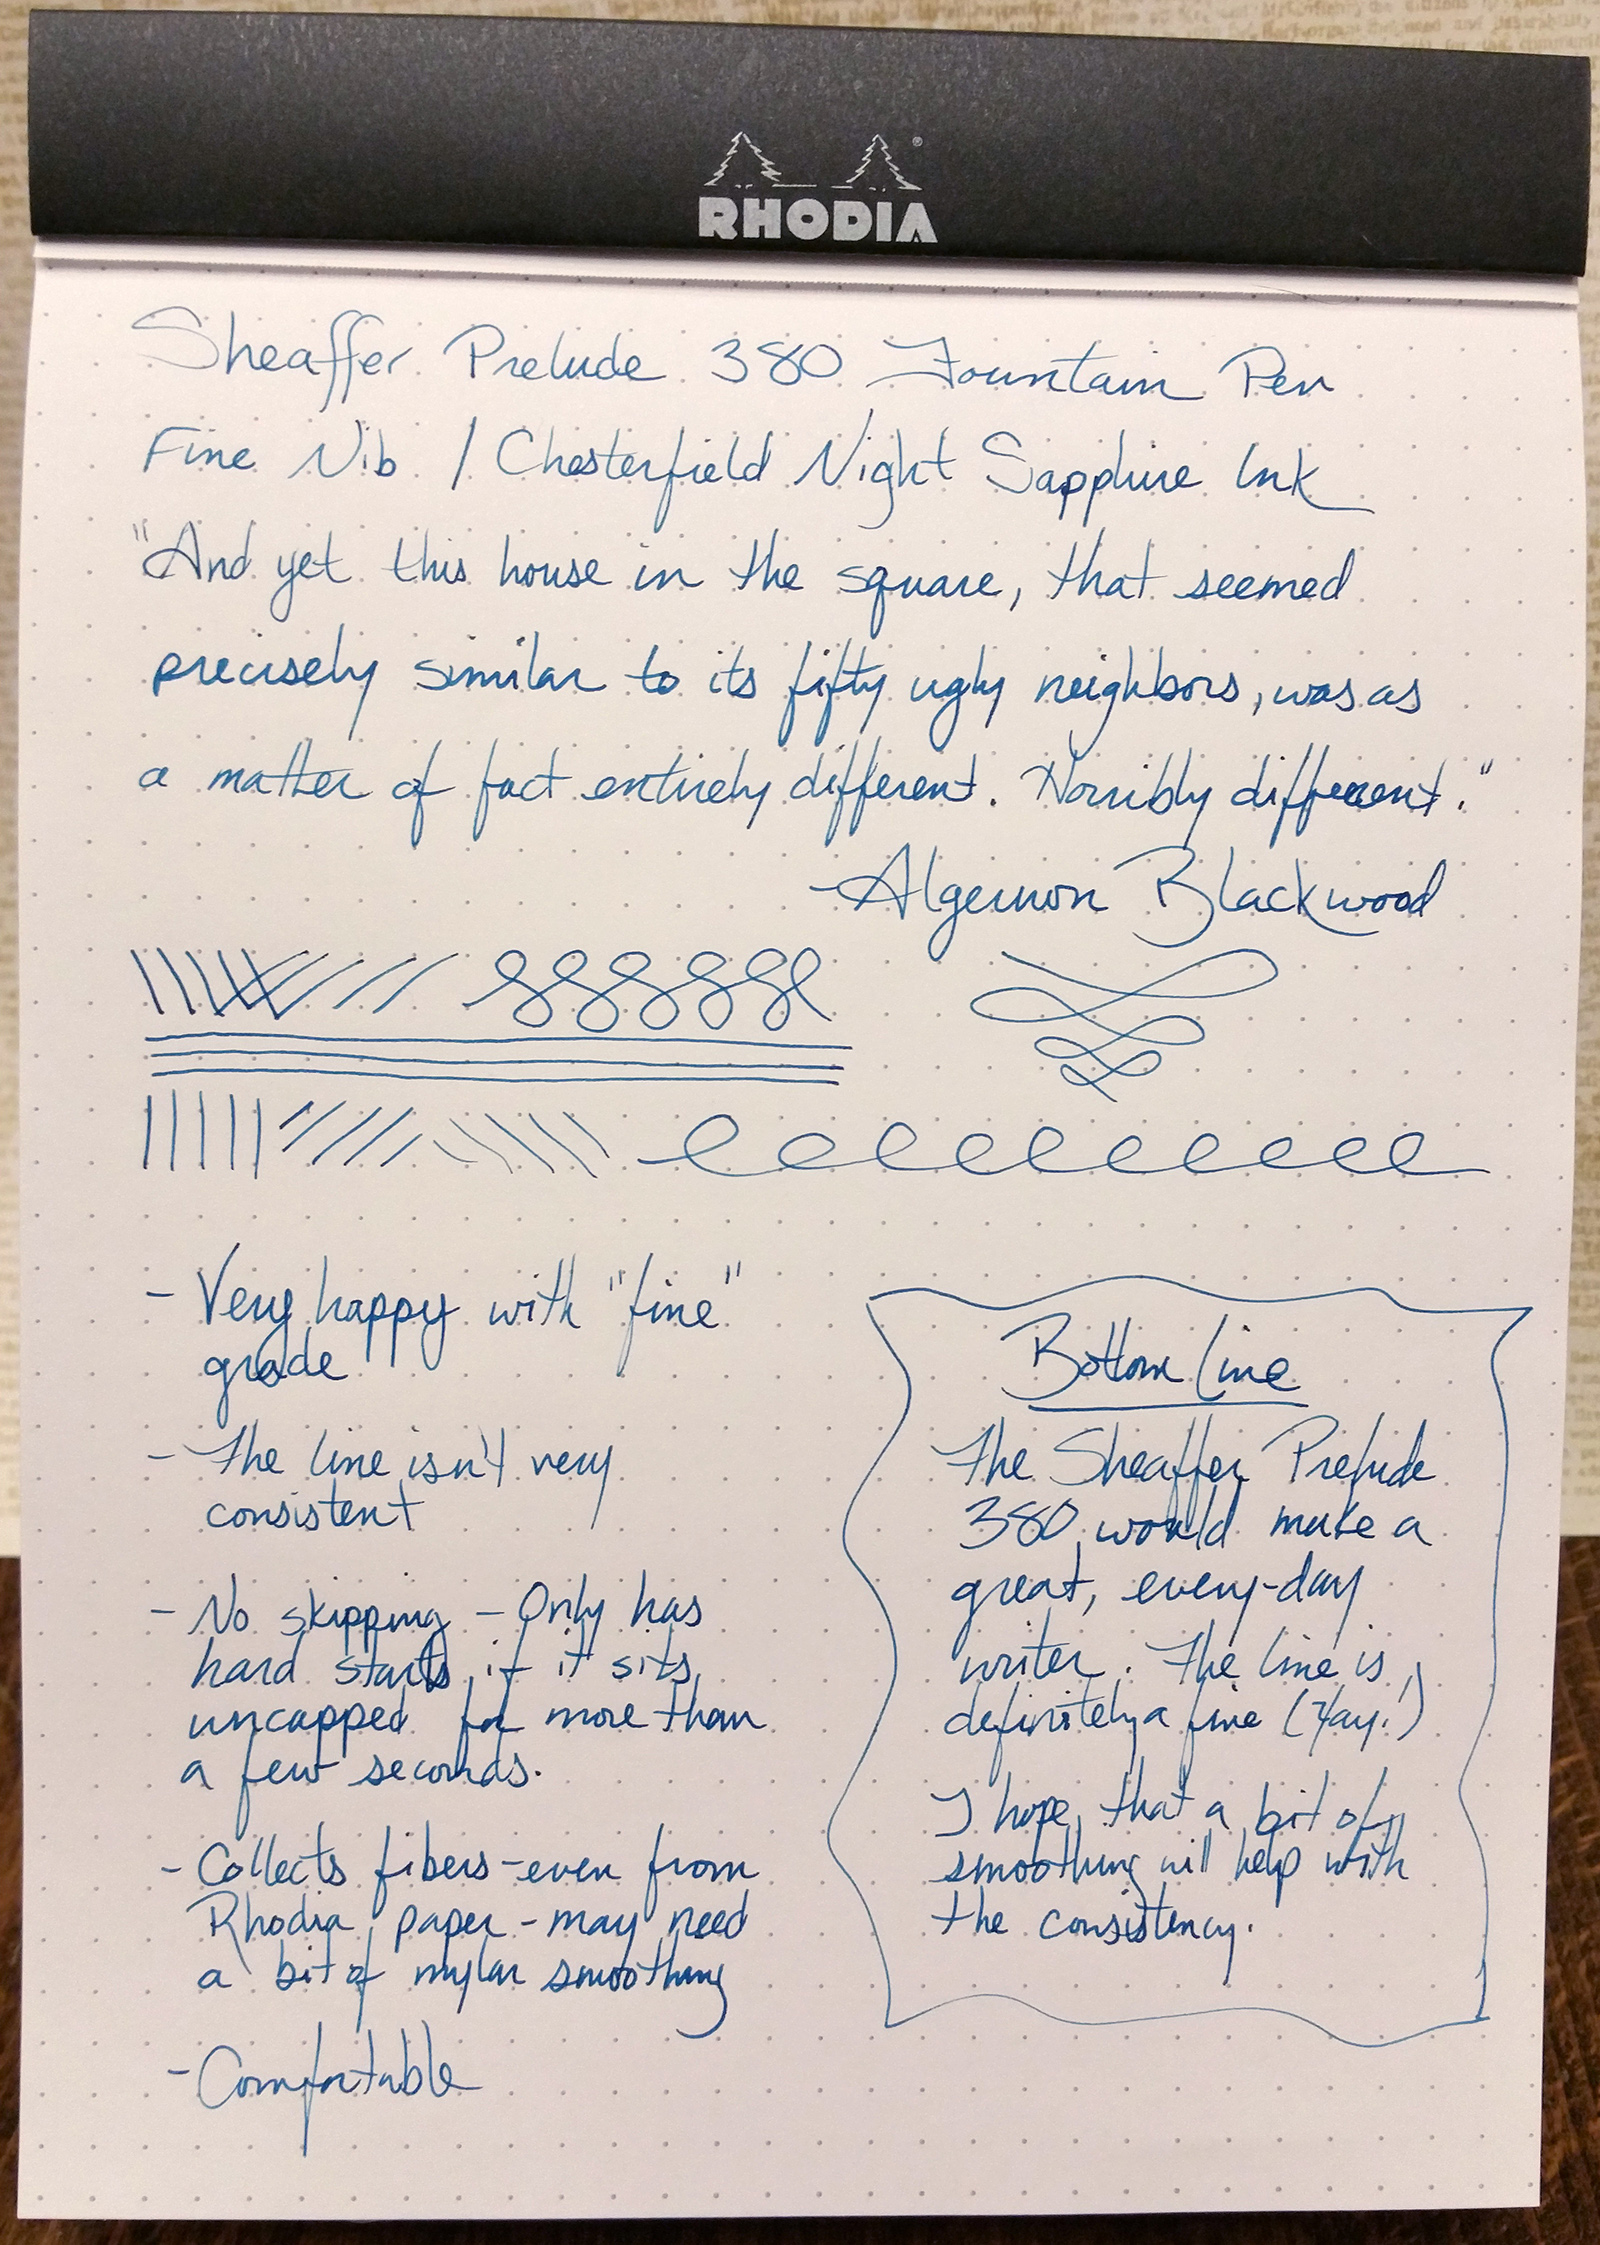 RHODIA
Sheaffer Prelude 380 Fountain Pen
Fine Nib / Chesterfield Night Sapphire Ink
"And yet this house in the square, that seemed
precisely similar to its fifty ugly neighbors, was as
a matter of fact entirely different. Horribly different."
-Algernon Blackwood
- Very happy with "fine"
grade
- The line isn't very
consistent
- No skipping - Only has
hard starts if it sits
uncapped for more than
a few seconds.
- Collects fibers - even from
Rhodia paper - may need
a bit of mylar smoothing
- Comfortable
Bottom Line
The Sheaffer Prelude
380 would make a
great, every-day
writer. The line is
definitely a fine (Yay!)
I hope that a bit of
smoothing will help with
the consistency.